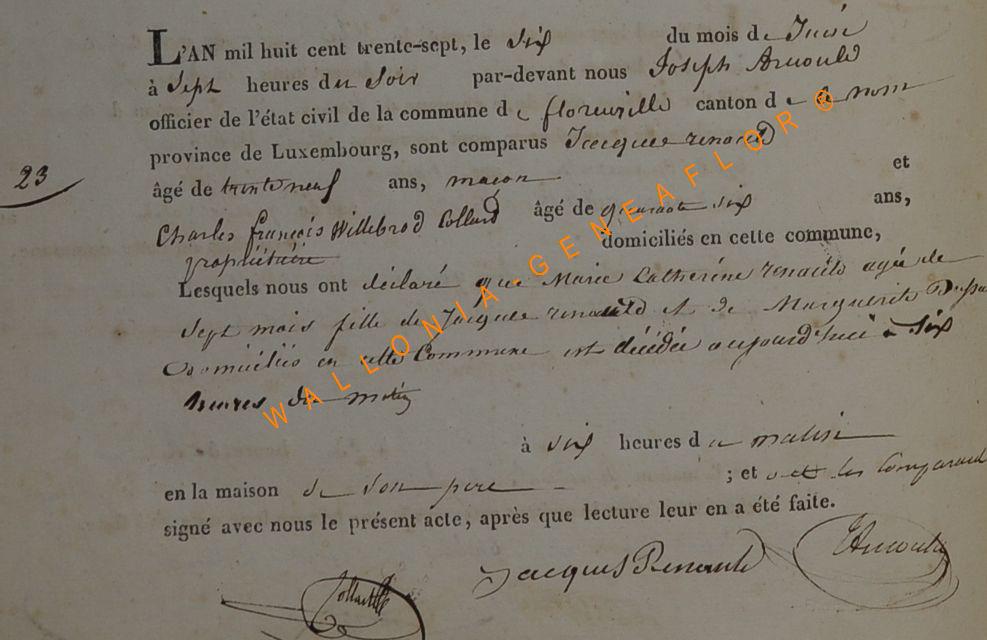 L'AN mil huit cent trente-sept, le six du mois de Juin
à sept heures du soir par-devant nous Joseph Arnould
officier de l'état civil de la commune de florenville canton de ce nom
province de Luxembourg, sont comparus Jacques renauld
23
âgé de trente neuf ans, maçon et
Charles françois Willebrod Collard âgé de quarante six ans,
propriétaire domiciliés en cette commune,
Lesquels nous ont déclaré que Marie Catherine renauld agée de
sept mois fille de Jacques renauld et de Marguerite
Domiciliés en cette Commune est décédée aujourd'hui à six
heures du matin
à six heures du matin
en la maison de son pere ; et ont les Comparants
signé avec nous le présent acte, après que lecture leur en a été faite.
Jacques Renauld JArnould
Collard
WALLONIA-GENEAFLOR©